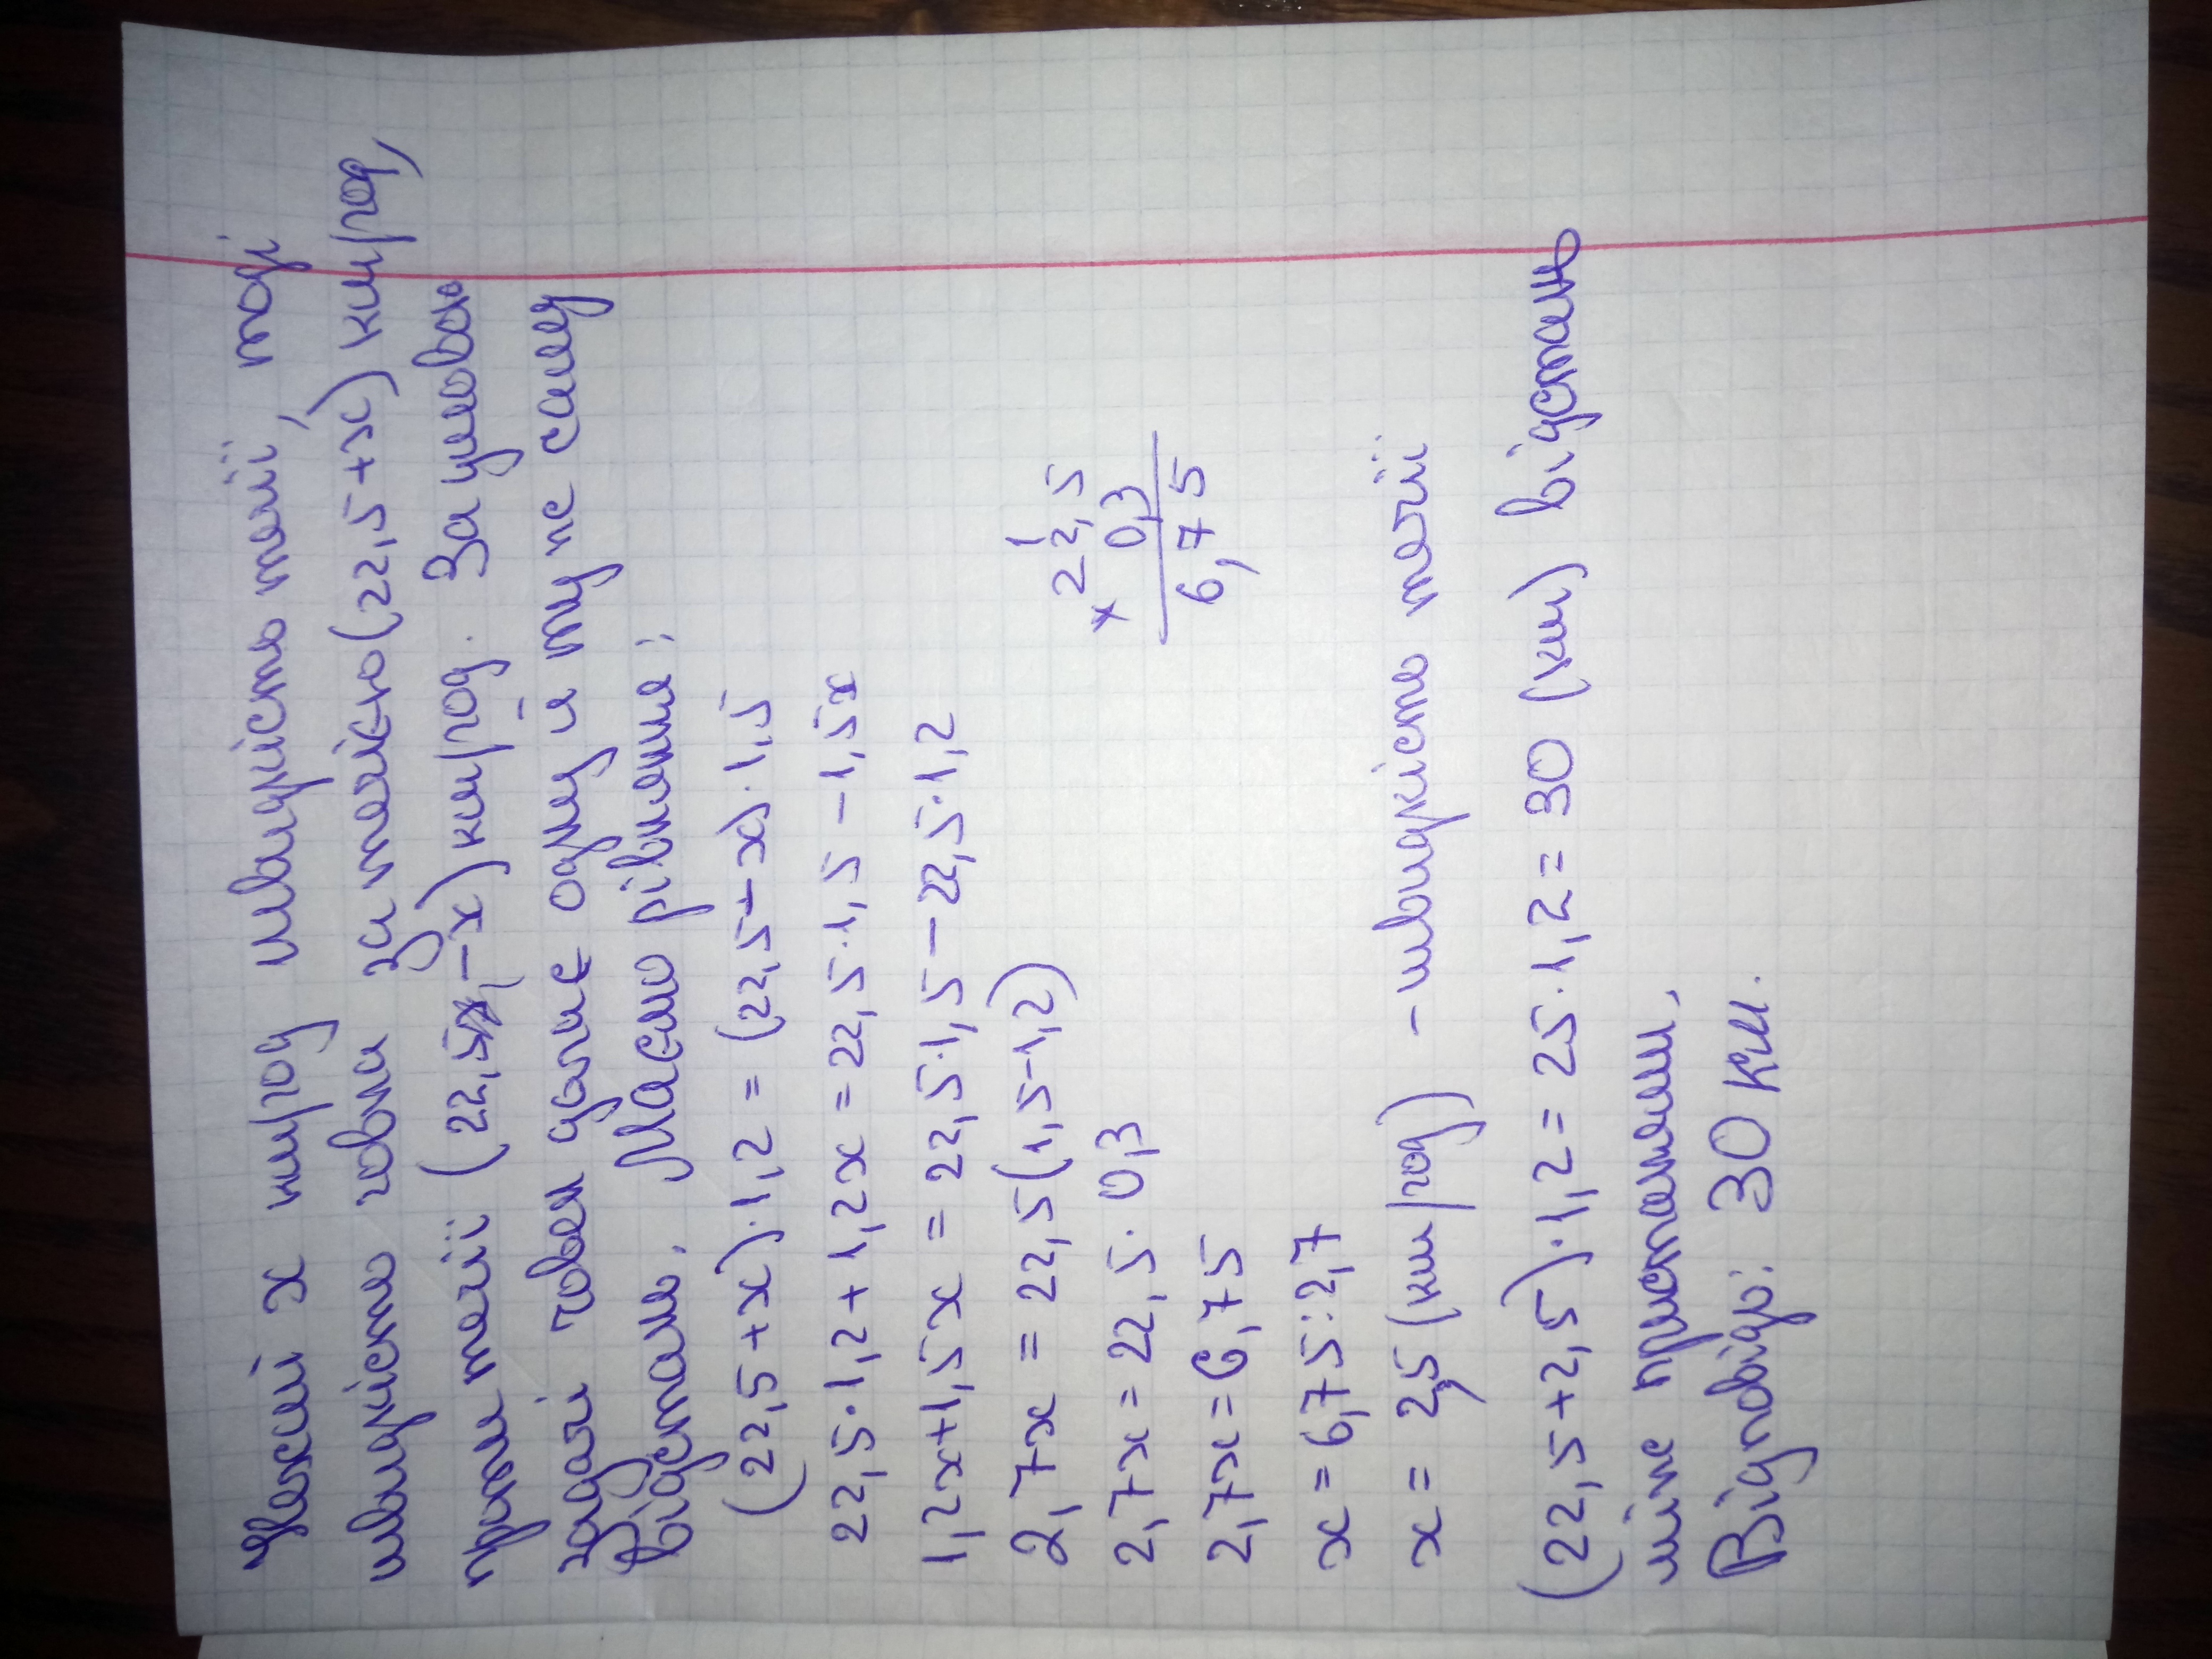 Нехай x км/год швидкість течії, тоді
швидкість човна за течією (22,5+x) км/год,
проти течії (22,5-x) км/год. За умовою
задачі човен долає одну й ту же саму
відстань. Маємо рівняння:
(22,5+x)·1,2=(22,5-x)·1,5
22,5·1,2+1,2x=22,5·1,5-1,5x
1,2x+1,5x=22,5·1,5-22,5·1,2
2,7x=22,5(1,5-1,2)
2,7x=22,5·0,3
2,7x=6,75
x=6,75:2,7
x=2,5(км/год) - швидкість течії
(22,5+2,5)·1,2=25·1,2=30 (км) відстань
між пристанями.
Відповідь: 30 км.
1
×22,5
0,3
6,75